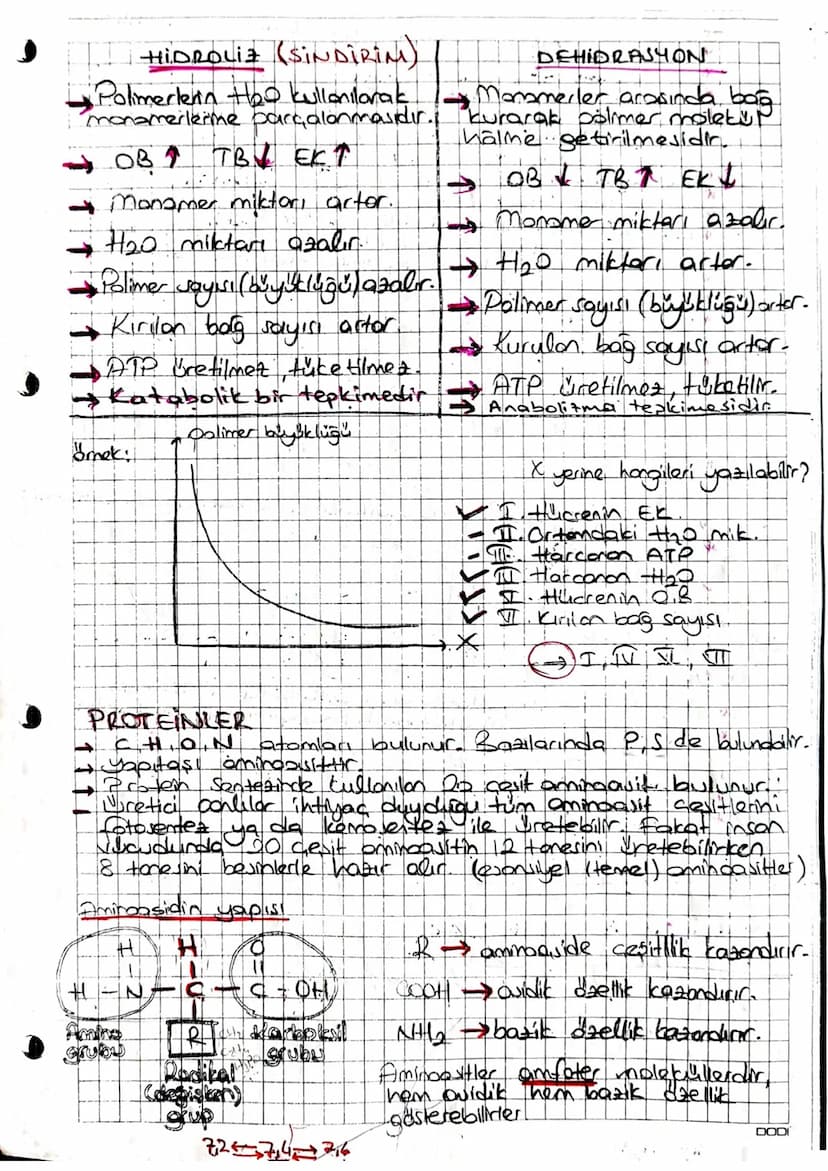 HİDROLİZ (SİNDİRİM)
→ Polimerlerin H2O kullanılarak
monomerlerine parçalanmasıdır.
→ OB↑ TB↓ EK↑
→ Monomer miktarı artar.
→ H2O miktarı azalır.
→ Polimer sayısı (büyüklüğü) azalır.
→ Kırılan bağ sayısı artar.
→ ATP üretilmez, tüketilmez.
→ Katabolik bir tepkimedir
DEHİDRASYON
→ Monomerler arasında bağ
kurarak polimer molekül
haline getirilmesidir.
→ OB↓ TB↑ EK↓
→ Monomer miktarı azalır.
→ H2O miktarı artar.
→ Polimer sayısı (büyüklüğü) artar.
→ Kurulan bağ sayısı artar.
→ ATP üretilmez, tüketilir.
→ Anabolizma tepkimesidir.
örnek:
polimer büyüklüğü
X
X yerine hangileri yazılabilir?
✓ I. Hücrenin EK.
- II. Ortamdaki H2O mik.
- III. Harcanan ATP
✓ Harcanan H2O
✓ Hücrenin O.B
✓ VI. Kırılan bağ sayısı.
→ I, IV,
PROTEİNLER
→ C, H, O, N atomları bulunur. Bazılarında P, S de bulunabilir.
→ yapıtaşı aminoasittir.
→ Protein sentezinde kullanılan çeşit aminoasit bulunur.
- Üretici canlılar ihtiyaç duyduğu tüm aminoasit çeşitlerini
fotosentez ya da kemosentez ile üretebilir. Fakat insan
vücudunda 20 çeşit aminoasitin 12 tanesini üretebilirken
8 tanesini besinlerle hazır alır. (esansiyel (temel) aminoasitler)
Aminoasidin yapısı
H H O
H - N - C - C - OH
R
Amino
grubu
Karboksil
grubu
Radikal
(değişken)
grup
R → aminoaside çeşitlilik kazandırır.
COOH → asidik özellik kazandırır.
NH2 → bazik özellik kazandırır.
Aminoasitler amfoter moleküllerdir,
hem asidik hem bazik özellik
gösterebilirler
7,2 ← 7,4 → 7,6